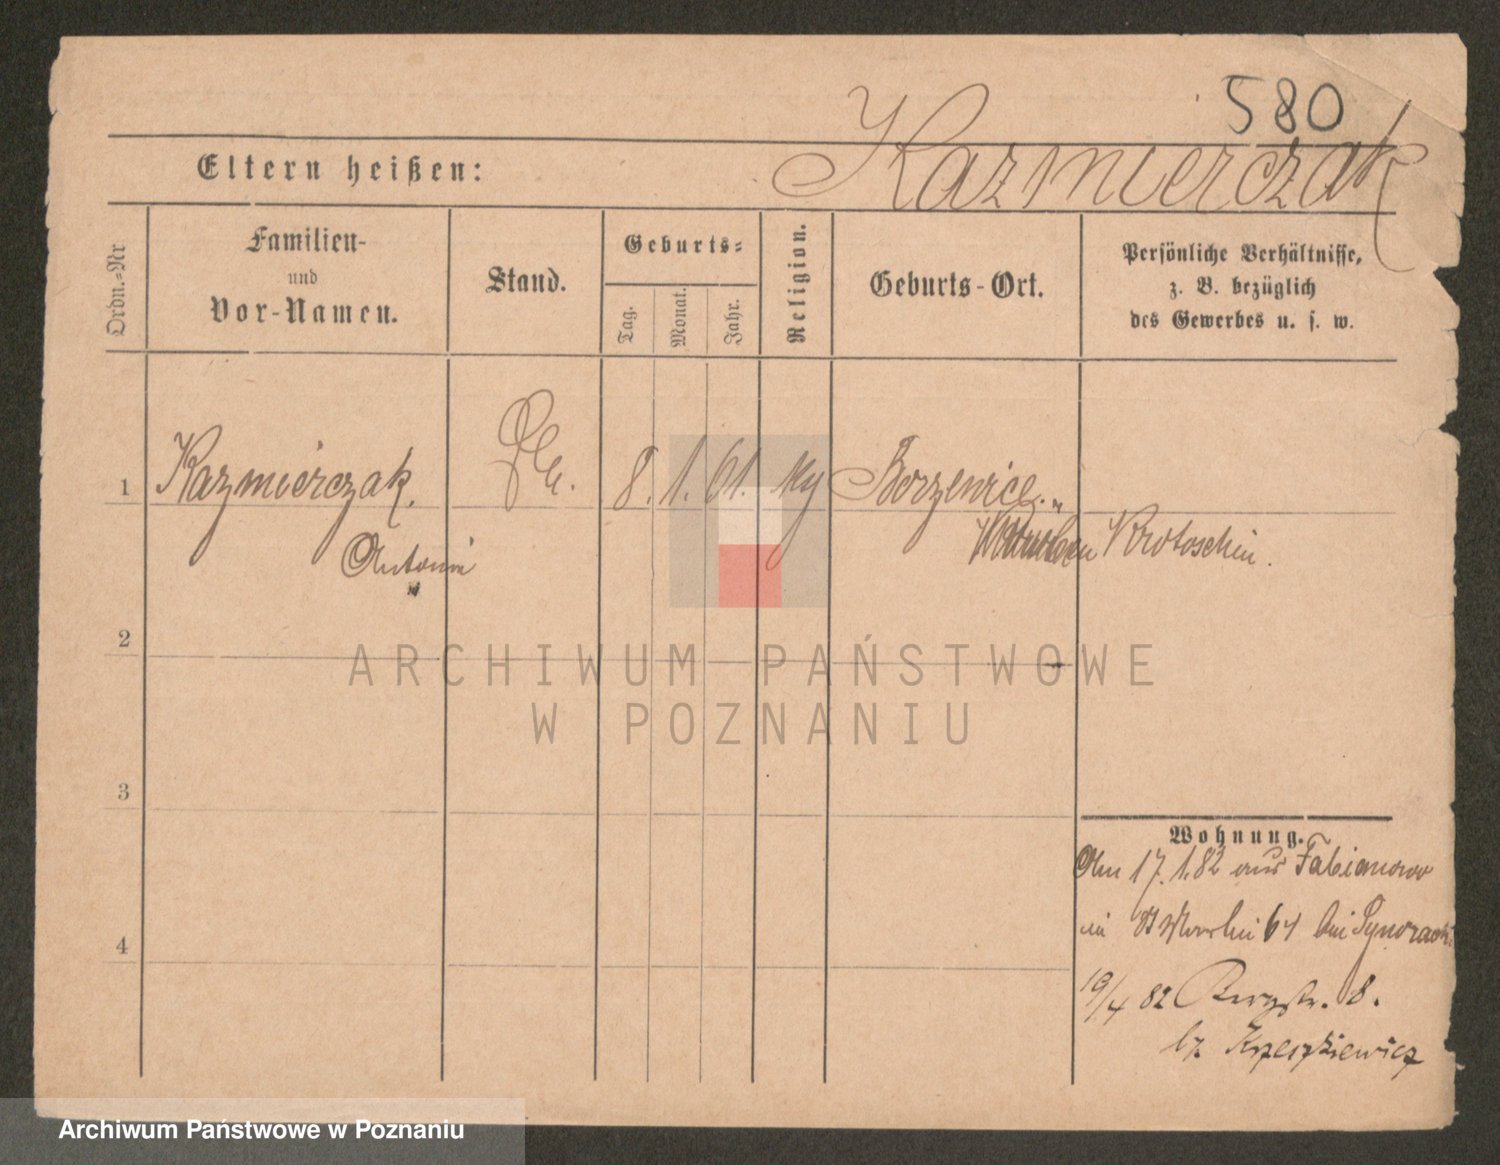 580
Eltern heißen: Kazmierczak
Ordn.-Nr
Familien-
und
Vor-Namen.
Stand.
Geburts-
Tag.
Monat.
Jahr.
Religion.
Geburts-Ort.
Persönliche Verhältnisse,
z. B. bezüglich
des Gewerbes u. s. w.
1 Kazmierczak. 8. 1. 61. Borzewice.
Antonie Krotoschin.
2
3
4
Wohnung.
Am 17.1.82 aus Fabianowo
in St Martin 64 bei
19/4 82 Bergstr. 8.
bz.
ARCHIWUM PAŃSTWOWE
W POZNANIU
Archiwum Państwowe w Poznaniu